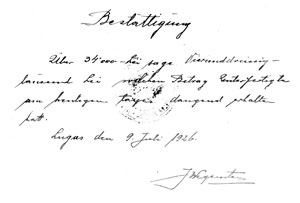 Bestättigung
Über 34000 Lei sage Vierunddreissig-
tausend Lei welchen Betrag Entsfertigte
am heutigen tage dangend erhalten
hat.
Lugos den 9. Juli 1926.